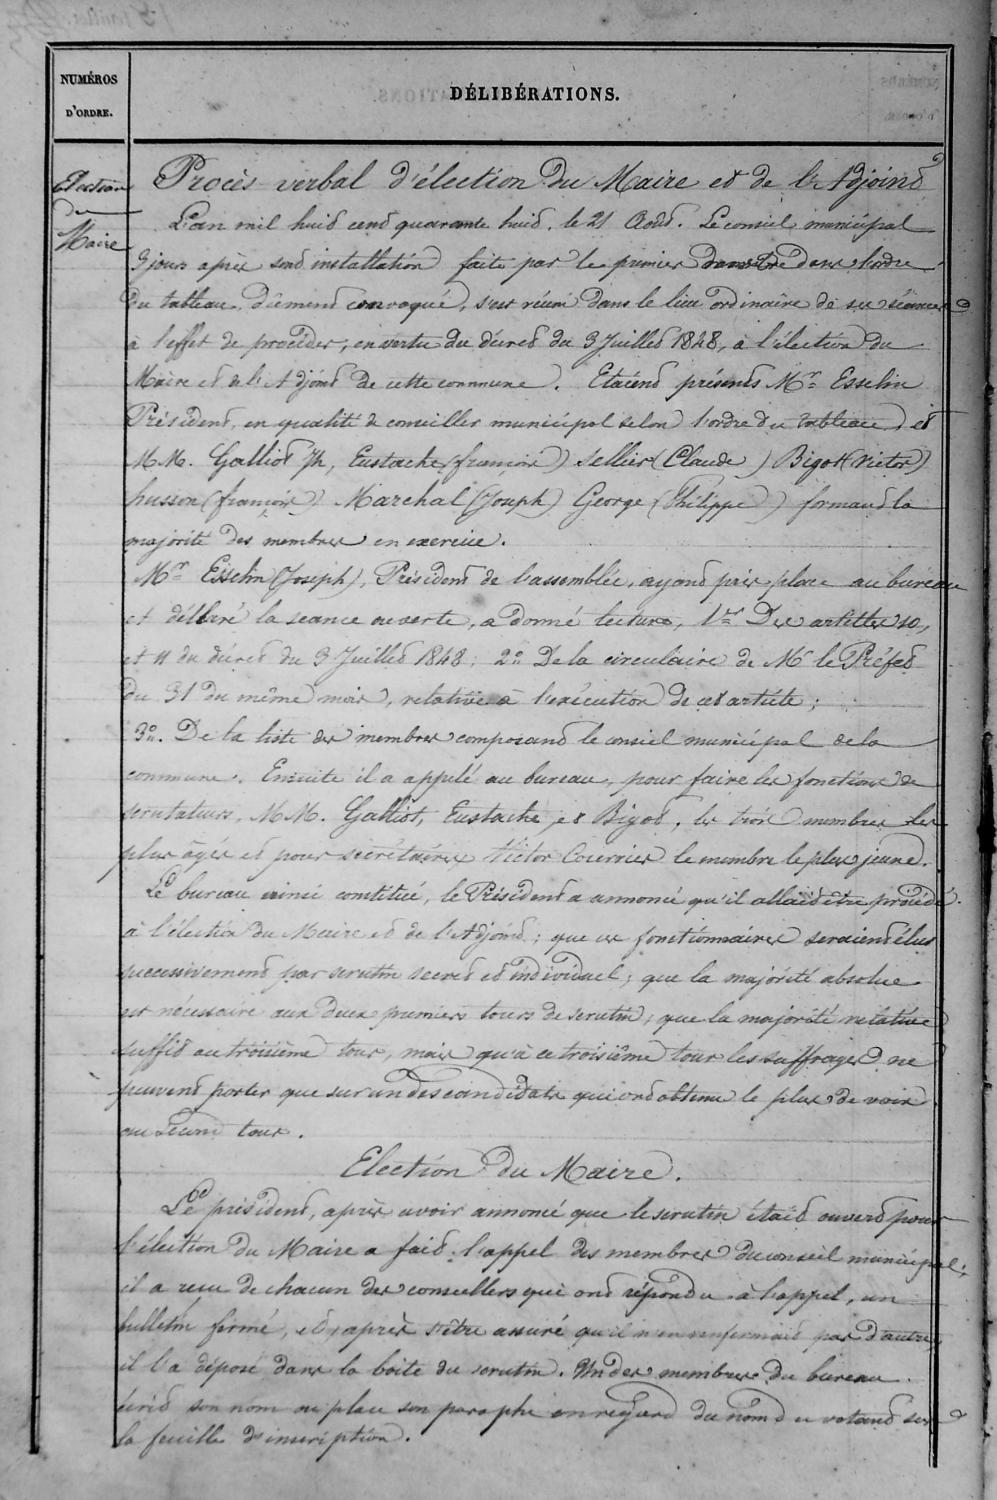 NUMÉROS
D'ORDRE.
DÉLIBÉRATIONS.
Election
du
Maire
Procès verbal d'élection du Maire et de l'Adjoint
L'an mil huit cent quarante huit, le 21 Août. Le conseil municipal
3 jours après son installation faite par le premier dans l'ordre
du tableau dûment convoqué, s'est réuni dans le lieu ordinaire de ses séances
à l'effet de procéder, en vertu du décret du 3 Juillet 1848, à l'élection du
Maire et de l'Adjoint de cette commune. Etaient présents Mr Esselin
Président, en qualité de conseiller municipal selon l'ordre du tableau, et
MM. Galliot Jh, Eustache (francois) Sellier (Claude) Bigot (Victor)
husson (francois) Marchal (Joseph) George (Philippe) formant la
majorité des membres en exercice.
Mr Esselin (Joseph), Président de l'assemblée, ayant pris place au bureau
et déclaré la seance ouverte, a donné lecture, 1er Des articles 10,
et 11 du décret du 3 Juillet 1848; 2o De la circulaire de Mr le Préfet
du 31 du même mois, relative à l'exécution de ces article;
3o. De la liste des membres composant le consiel municipal de la
commune. Ensuite il a appelé au bureau, pour faire les fonctions de
scrutateurs, MM. Galliot, Eustache, et Bigot, les trois membres les
plus âgés et pour secrétaires Victor Courrier le membre le plus jeune.
Le bureau ainsi constitué, le Président a annoncé qu'il allait être procédé
à l'élection du Maire et de l'Adjoint; que ces fonctionnaires seraient élus
successivement par scrutin secret et individuel; que la majorité absolue
est nécessaire aux deux premiers tours de scrutin, que la majorité relative
suffit au troisième tour, mais qu'à ce troisième tour les suffrages ne
peuvent porter que sur un des candidats qui ont obtenu le plus de voix
au second tour.
Election du Maire.
Le président, après avoir annoncé que le scrutin était ouvert pour
l'élection du Maire a fait l'appel des membres du conseil municipal;
il a recu de chacun des conseillers qui ont répondu à l'appel, un
bulletin fermé, et, après s'être assuré qu'il n'en renfermait pas d'autre,
il l'a déposé dans la boite du scrutin. Un des membres du bureau
écrit son nom ou place son paraphe en regard du nom du votant sur
la feuille d'inscription.